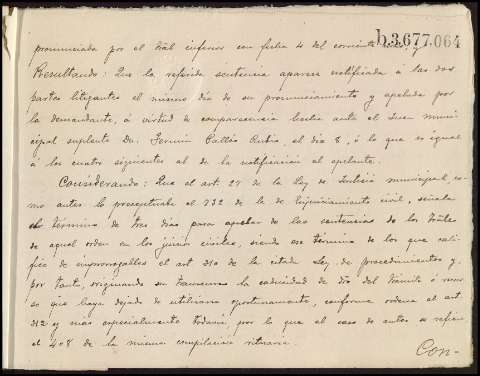 b.3.677.064
pronunciada por el Trâl inferior con fecha 4 del corriente
Resultando: Que la referida sentencia aparece notificada á las dos
partes litigantes el mismo día de su pronunciamiento y apelada por
la demandante, á virtud de comparecencia hecha ante el Juez muni-
cipal suplente Dn. Fermín Rubio, el día 8, ó lo que es igual
á los cuatro siguientes al de la notificación al apelante.
Considerando: Que el art. 27 de la Ley de Justicia municipal, co-
mo antes lo preceptuaba el 732 de la de Enjuiciamiento civil, señala
el término de tres días para apelar de las sentencias de los Trâles
de aquel orden en los juicios civiles, siendo ese término de los que cali-
fica de improrrogables el art. 310 de la citada Ley de procedimientos y,
por tanto, originando su transcurso la caducidad de dro del trámite ó recur
so que haya dejado de utilizarse oportunamente, conforme ordena el art.
312 y más especialmente todavía por lo que al caso de autos se refiere
el 408 de la misma compilación rituaria.
Con-